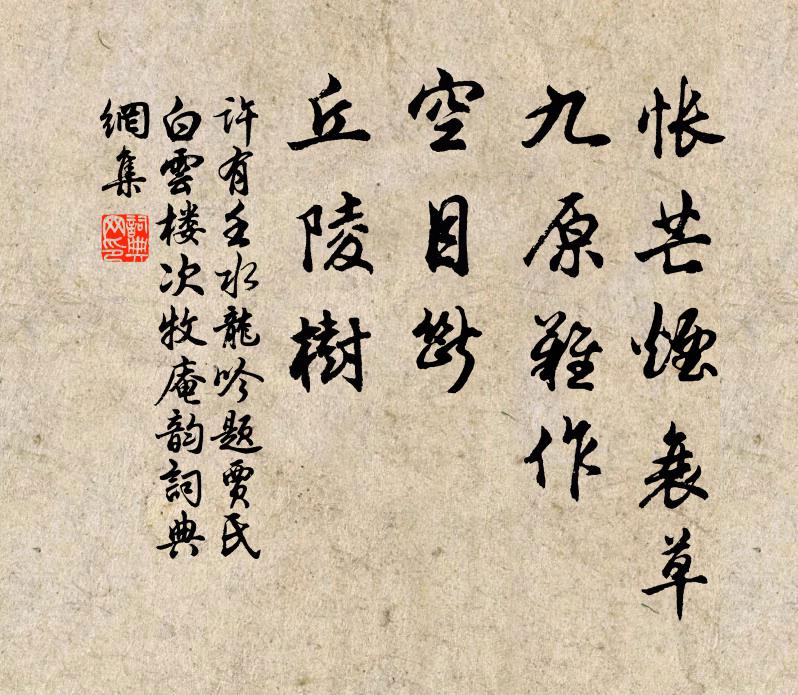 悵芒煙衰草
九原難作
空目斷
丘陵樹
許有壬水龍吟题賈氏
白雲楼次牧庵韵詞典
網集
詞典
网印